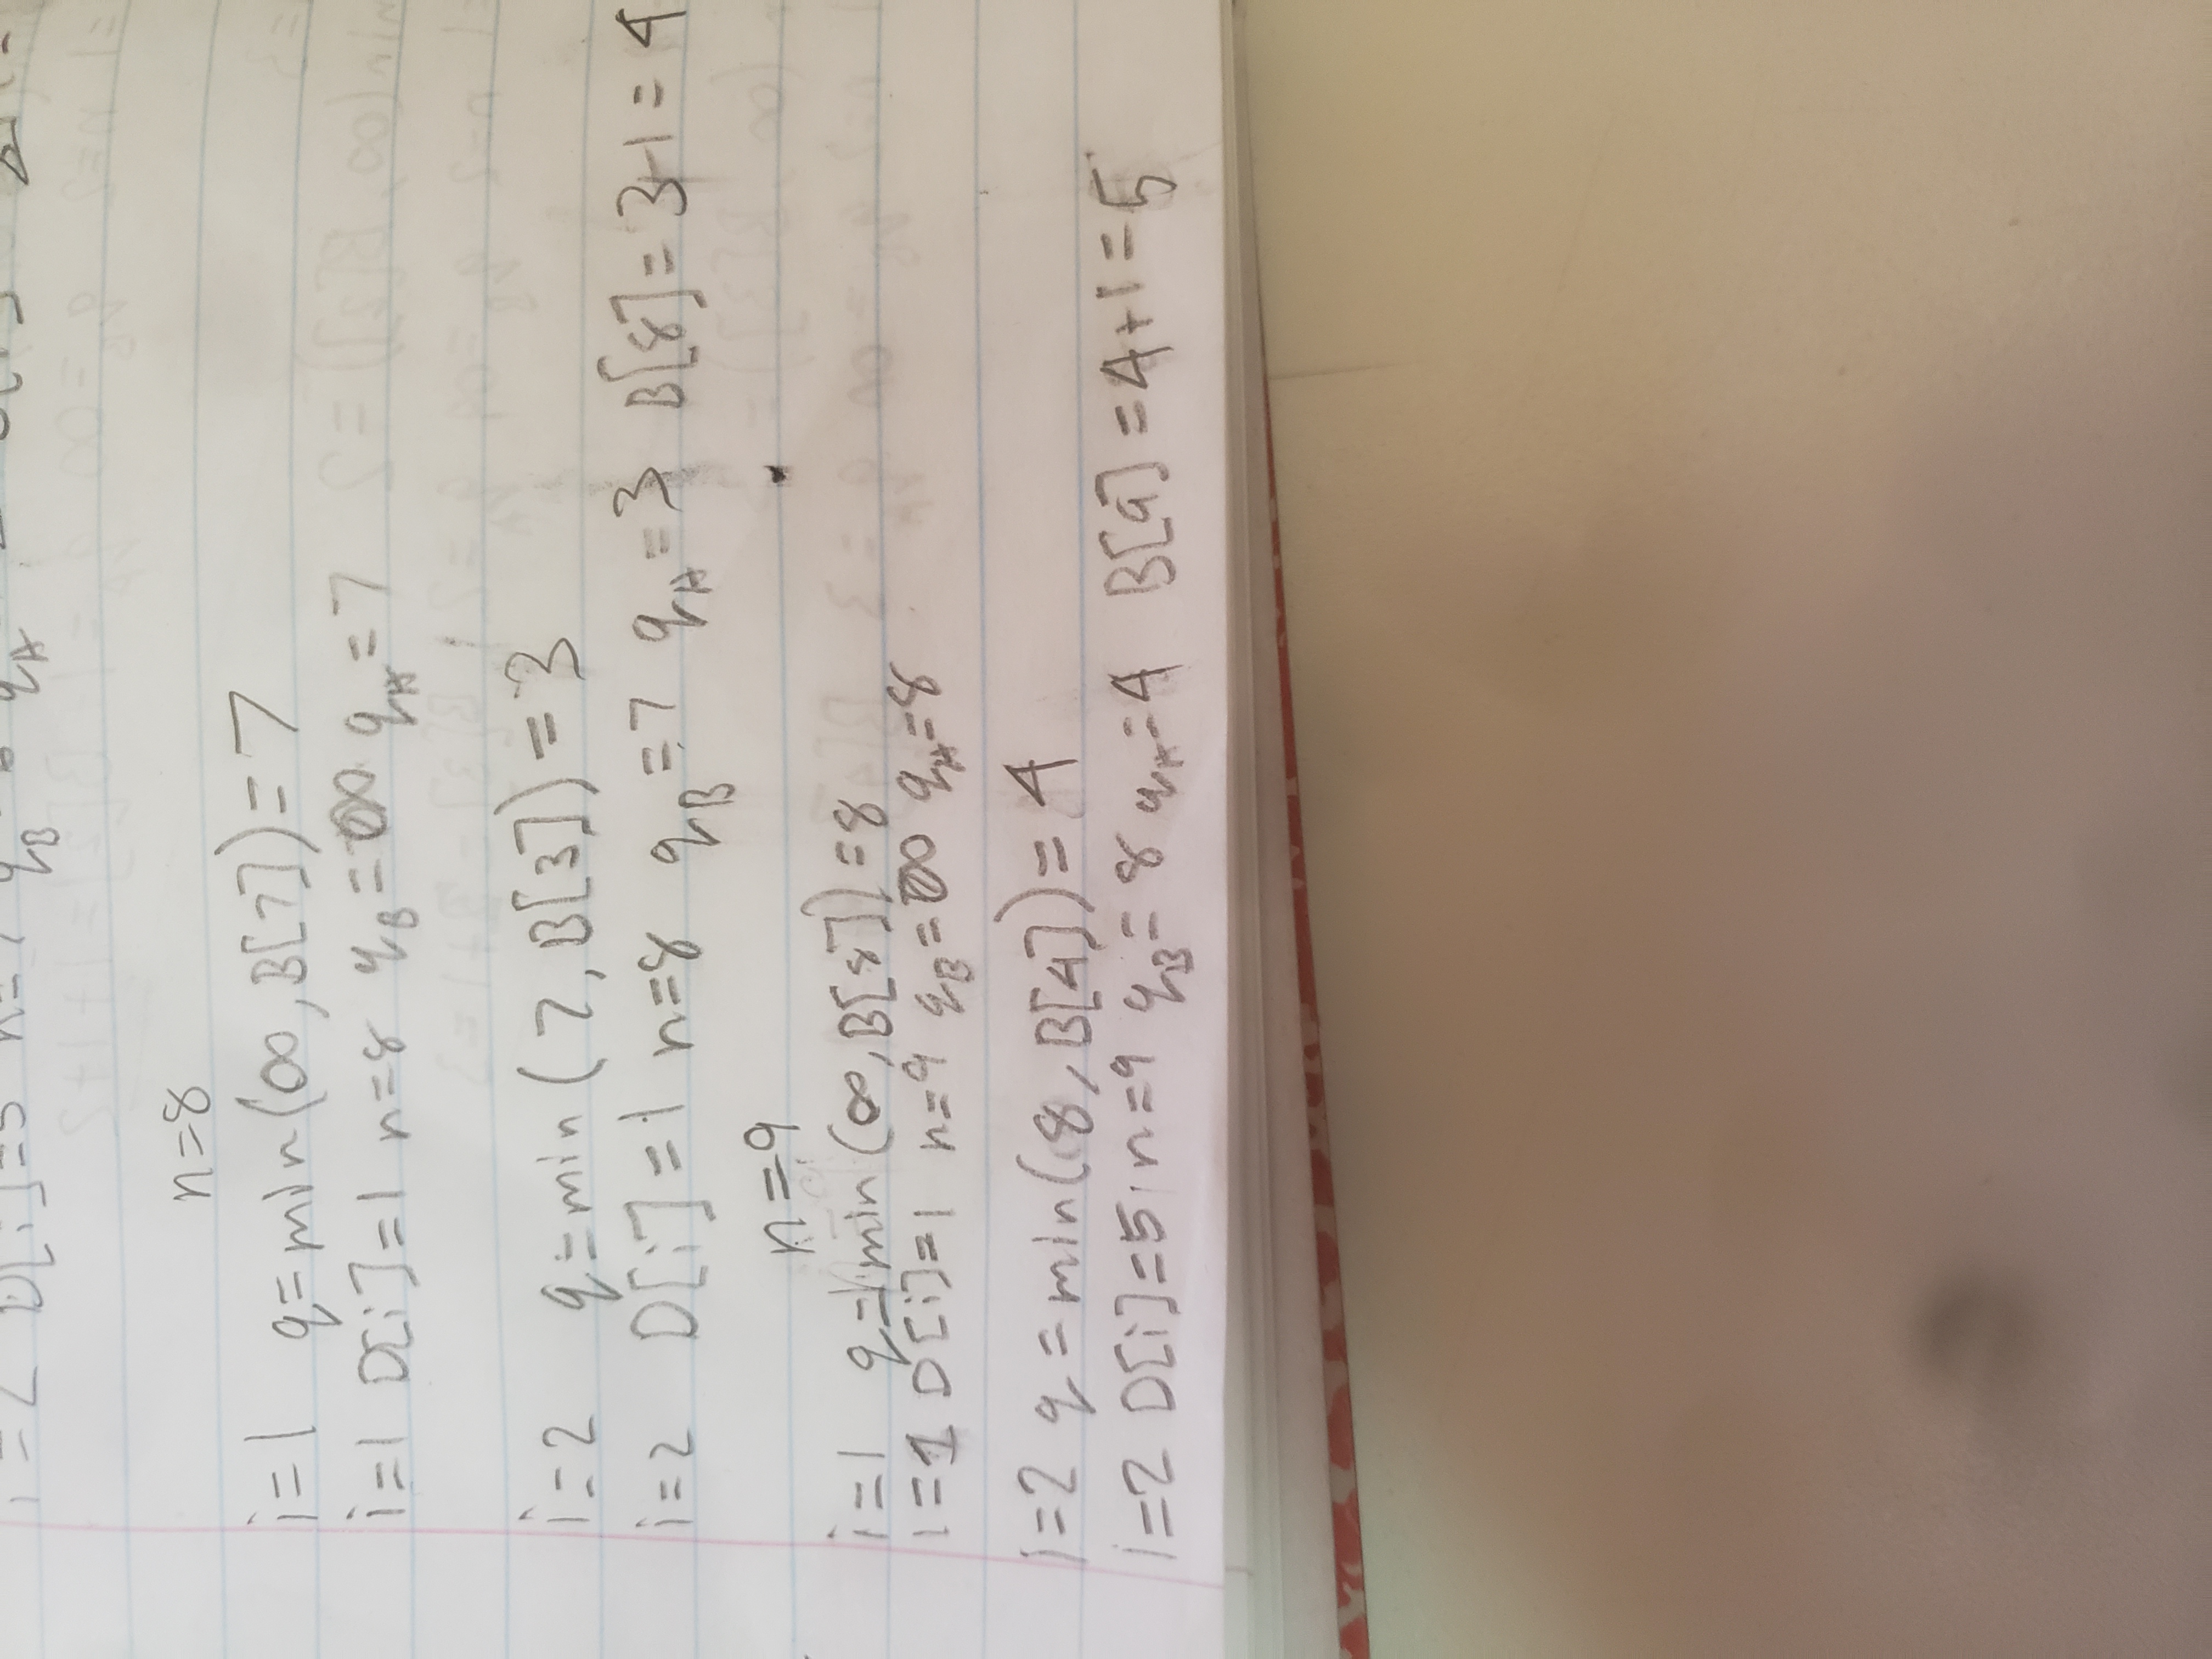 i=2 D[i]=5 n=7 qB
n=8
i=1 q=min(∞,B[7])=7
i=1 D[i]=1 n=8 qB=∞ qA=7
i=2 q=min(7,B[3])=3
i=2 D[i]=1 n=8 qB=7 qA=3 B[8]=3+1=4
n=9
i=1 q=min(∞,B[8])=8
i=1 D[i]=1 n=9 qB=∞ qA=8
i=2 q=min(8,B[4])=4
i=2 D[i]=5 n=9 qB=8 qA=4 B[9]=4+1=5